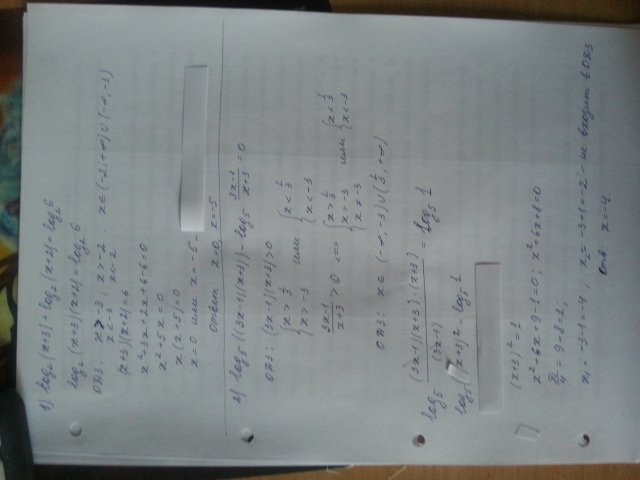 1) log₂(x+3) + log₂(x+2) = log₂6
log₂(x+3)(x+2) = log₂6
ОДЗ: x > -3 ; x > -2 ; x ∈ (-2, +∞) ∪ (-∞, -3)
x < -3 x < -2
(x+3)(x+2) = 6
x² + 3x + 2x + 6 - 6 = 0
x² + 5x = 0
x(x+5) = 0
x = 0 или x = -5
Ответ: x=0, x=-5
2) log₅((3x-1)(x+3)) - log₅ (3x-1)/(x+3) = 0
ОДЗ: (3x-1)(x+3) > 0
{x > 1/3 x > -3 или {x < 1/3 x < -3
(3x-1)/(x+3) > 0 <=> {x > 1/3 x > -3 x ≠ -3 или {x < 1/3 x < -3
ОДЗ: x ∈ (-∞, -3) ∪ (1/3, +∞)
log₅ (3x-1)(x+3)·(x+3)/(3x-1) = log₅ 1
log₅(x+3)² = log₅ 1
(x+3)² = 1
x² + 6x + 9 - 1 = 0 ; x² + 6x + 8 = 0
D/4 = 9 - 8 = 1,
x₁ = -3-1 = -4, x₂ = -3+1 = -2 - не входит в ОДЗ
Отв: x = -4